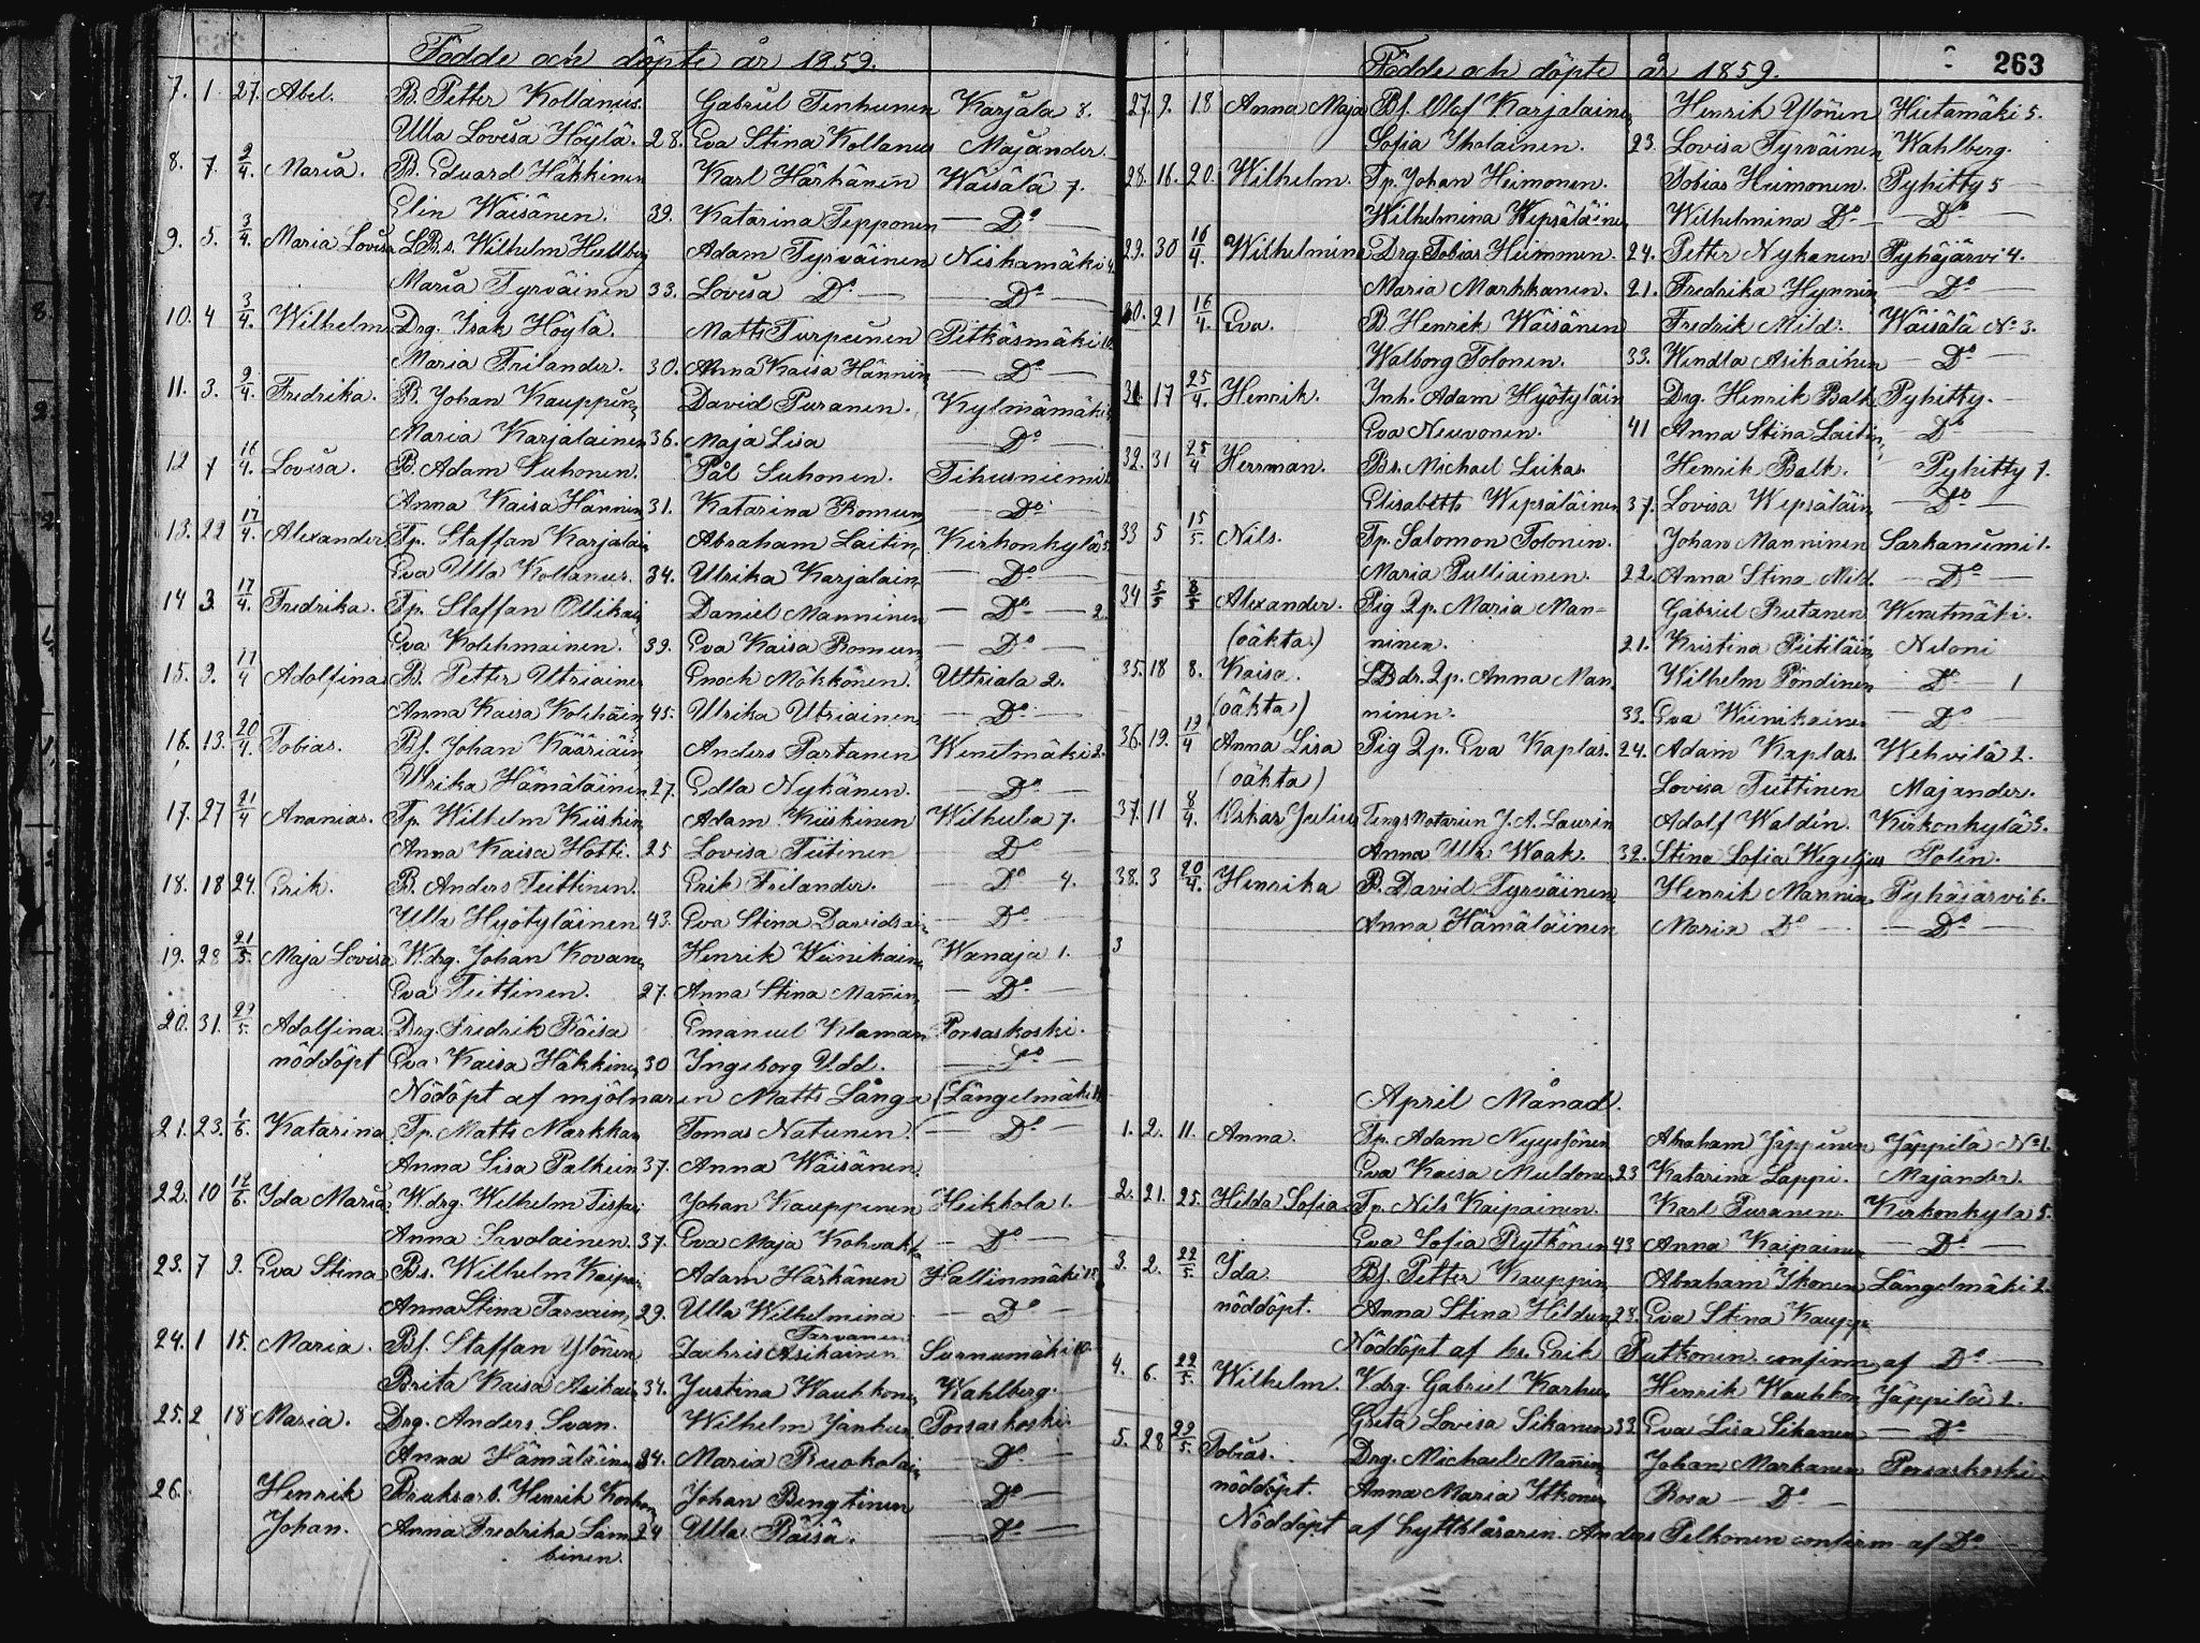 Födde och döpte år 1859.
7. 1 27. Abel. B. Petter Kollanus. Gabriel Tenhunen Karjala 8.
Ulla Lovisa Höylä. 28. Eva Stina Kollanus Majander.
8. 7. 2/4. Maria. B. Eduard Häkkinen Karl Härkänen Wäisälä 7.
Elin Wäisänen. 39. Katarina Tepponen — Do —
9. 5. 3/4. Maria Lovisa LBs. Wilhelm Hullberg Adam Tyrväinen Niskamäki 4.
Maria Tyrväinen 33. Lovisa Do — — Do —
10. 4 3/4. Wilhelm Drg. Isak Höylä. Matts Turpeinen Pitkäsmäki 10.
Maria Frilander. 30. Anna Kaisa Hännin — Do —
11. 3. 9/4. Fredrika. B. Johan Kauppin David Puranen. Kylmämäki
Maria Karjalainen 36. Maja Lisa — Do —
12 7 16/4. Lovisa. B. Adam Suhonen. Pål Suhonen. Tihusniemi
Anna Kaisa Hännin 31. Katarina Romun — Do —
13. 22 17/4. Alexander. Tp. Staffan Karjalai Abraham Laitin Kirkonkylä 5.
Eva Ulla Kollanus. 34. Ulrika Karjalain — Do —
14 3. 17/4. Fredrika. Tp. Staffan Ollikai Daniel Manninen — Do — 2.
Eva Kolehmainen. 39. Eva Kaisa Romun — Do —
15. 9. 17/4 Adolfina B. Petter Utriainen Enoch Mökkönen. Uttriala 2.
Anna Kaisa Kolehäin 45. Ulrika Utriainen — Do —
16. 13. 20/4. Tobias. Bf. Johan Kääriäin Anders Partanen Wenetmäki 2.
Ulrika Hämäläinen 27. Edla Nykänen. — Do —
17. 27 21/4 Ananias. Tp. Wilhelm Kiiskin Adam Kiiskinen Wilhula 7.
Anna Kaisa Hotti. 25 Lovisa Tiitinen Do —
18. 18 24. Erik. B. Anders Teittinen. Erik Frilander. — Do 4.
Ulla Hyötyläinen 43. Eva Stina Davidsai — Do —
19. 28 21/5. Maja Lovisa W.drg. Johan Kovan Henrik Wiinikain Wanaja 1.
Eva Teittinen. 27. Anna Stina Mañin — Do —
20. 31. 29/5. Adolfina Drg. Fredrik Räisä Emanuel Klaman Porsaskoski.
nöddöpt Eva Kaisa Häkkinen 30 Ingeborg Udd. — Do —
Nödöpt af mjölnaren Matts Långa (Längelmäki
21. 23. 1/6. Katarina Tp. Matts Markkan Tomas Natunen. — Do —
Anna Lisa Palkein 37. Anna Wäisänen.
22. 10 12/6. Ida Maria W.drg. Wilhelm Johan Kauppinen Heikkola 1.
Anna Savolainen. 37. Eva Maja Kohvak — Do —
23. 7 9. Eva Stina Bs. Wilhelm Kaipai Adam Härkänen Hallinmäki
Anna Stina Tarvain 29. Ulla Wilhelmina — Do —
Tarvanen
24. 1 15. Maria. Bf. Staffan Ylönen Zachris Asikainen Surnumäki 10.
Brita Kaisa Asikain 34. Justina Kauhkone Wahlberg.
25. 2 18 Maria. Drg. Anders Svan. Wilhelm Janhun Porsaskoski
Anna Hämäläinen 34. Maria Ruokolai — Do —
26. Henrik Bruksarb. Henrik Johan Bengtinen — Do —
Johan. Anna Fredrika Lam 24 Ulla Räisä. — Do —
binen.
263
Födde och döpte år 1859.
27. 9. 18 Anna Maja Bf. Olof Karjalaine Henrik Ylönen Hietamäki 5.
Sofia Iholainen. 23. Lovisa Tyrväinen Wahlberg.
28. 16. 20. Wilhelm. Tp. Johan Heimonen. Tobias Heimonen. Pyhitty 5
Wilhelmina Wepsäläine Wilhelmina Do — — Do —
29. 30 16/4. Wilhelmina Drg. Tobias Heimmen. 24. Petter Nykänen Pyhäjärvi 4.
Maria Markkanen. 21. Fredrika Hynnin — Do —
30. 21 16/4. Eva. B. Henrik Wäisänen Fredrik Mild. Wäisälä No 3.
Walborg Tolonen. 33. Wendla Asikainen — Do —
31. 17 25/4. Henrik. Inh. Adam Hyötyläin Drg. Henrik Balk Pyhitty.
Eva Neuvonen. 41 Anna Stina Laitin — Do —
32. 31 25/4 Herrman. Bs. Michael Leikas. Henrik Balk. Pyhitty 7.
Elisabetts Wepsäläinen 37. Lovisa Wepsäläin — Do —
33 5 15/5. Nils. Tp. Salomon Tolonen. Johan Manninen Sarkaniemi 1.
Maria Pulliainen. 22. Anna Stina Mild — Do —
34 5/5 8/5 Alexander. Pig. Qp. Maria Man- Gabriel Rutanen Wenetmäki.
(oäkta) ninen. 21. Kristina Piitiläin Niloni
35. 18 8. Kaisa. LBdr. Qp. Anna Man Wilhelm Pöndinen — Do — 1
(oäkta) ninen. 33. Eva Wiinikaine — Do —
36. 19. 19/4 Anna Lisa Pig Qp. Eva Kaplas. 24. Adam Kaplas. Wehvilä 2.
(oäkta) Lovisa Tiittinen Majander.
37. 11 8/4. Oskar Julius Tings Notarien J. A. Laurin Adolf Waldén. Kirkonkylä 3.
Anna Ulla Waak. 32. Stina Sofia Wegelius Polén.
38. 3 20/4. Henrika B. David Tyrväinen Henrik Mannin Pyhäjärvi 6.
Anna Hämäläinen Maria Do — — Do —
3
April Månad.
1. 2. 11. Anna. Tp. Adam Nyyssönen Abraham Jäppinen Jäppilä No 1.
Eva Kaisa Muldonen 23 Katarina Lappi. Majander.
2. 21. 25. Hilda Sofia Tp. Nils Kaipainen. Karl Puranen. Kirkonkylä 5.
Eva Sofia Rytkönen 43 Anna Kaipainen — Do —
3. 2. 22/5. Ida Bf. Petter Kauppin Abraham Ikonen Längelmäki 2.
nöddöpt. Anna Stina Hildun 28. Eva Stina Kaupp
Nöddöpt af br. Erik Putkonen confirm. af Do —
4. 6. 22/5. Wilhelm. V.drg. Gabriel Karhun Henrik Wauhkon Jäppilä 2.
Greta Lovisa Sikanen 33. Eva Lisa Sikanen — Do —
5. 28 29/5. Tobias. Drg. Michael Mañin Johan Markanen Porsaskoski
nöddöpt. Anna Maria Itkonen Rosa — Do —
Nöddöpt af hyttklåsaren Anders Pelkonen confirm. af Do